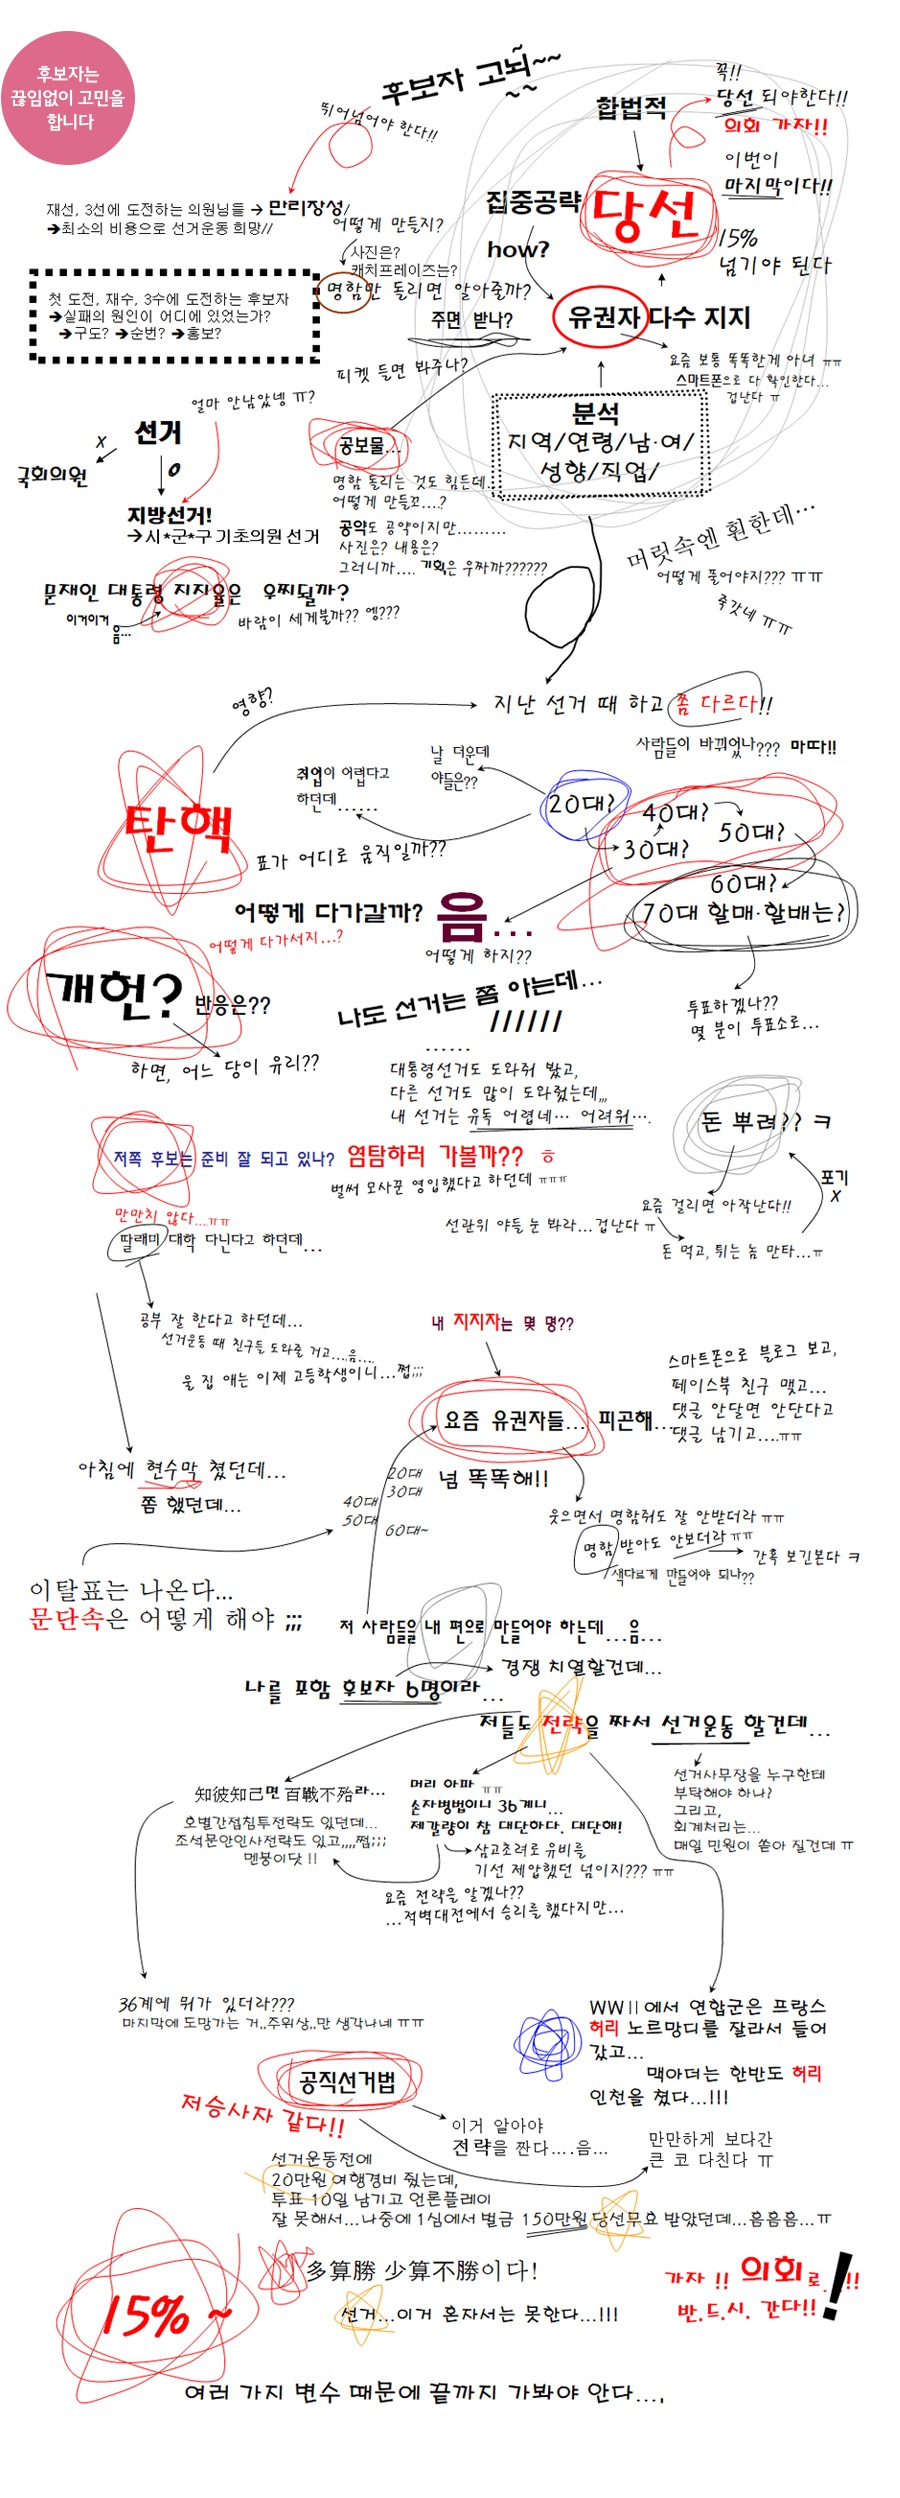 후보자는
끊임없이 고민을
합니다
후보자 고뇌~~
~~
뛰어넘어야 한다!!
합법적
꼭!!
당선 되야한다!!
의회 가자!!
이번이
마지막이다!!
당선
15%
넘기야 된다
집중공략
how?
재선, 3선에 도전하는 의원님들 → 만리장성/
→최소의 비용으로 선거운동 희망//
어떻게 만들지?
사진은?
캐치프레이즈는?
명함만 돌리면 알아줄까?
주면 받나?
첫 도전, 재수, 3수에 도전하는 후보자
→실패의 원인이 어디에 있었는가?
→구도? →순번? →홍보?
유권자 다수 지지
요즘 보통 똑똑한게 아녀 ㅠㅠ
스마트폰으로 다 확인한다...
겁난다 ㅠ
피켓 들면 봐주나?
얼마 안남았넹 ㅠ?
분석
지역/연령/남·여/
성향/직업/
선거
X
O
국회의원
지방선거!
→시*군*구 기초의원 선거
공보물...
명함 돌리는 것도 힘든데...
어떻게 만들꼬....?
공약도 공약이지만.........
사진은? 내용은?
그러니까.... 기획은 우짜까??????
머릿속엔 훤한데...
어떻게 풀어야지??? ㅠㅠ
죽갓네 ㅠㅠ
문재인 대통령 지지율은 우찌될까?
이거이거
음...
바람이 세게불까?? 엥???
영향?
지난 선거 때 하고 쫌 다르다!!
사람들이 바뀌었나??? 마따!!
탄핵
취업이 어렵다고
하던데......
날 더운데
야들은??
20대?
40대?
30대?
50대?
60대?
70대 할매·할배는?
표가 어디로 움직일까??
어떻게 다가갈까? 음...
어떻게 다가서지...?
어떻게 하지??
개헌? 반응은??
하면, 어느 당이 유리??
나도 선거는 쫌 아는데...
//////
......
대통령선거도 도와줘 봤고,
다른 선거도 많이 도와줬는데,,,
내 선거는 유독 어렵네... 어려워....
투표하겠나??
몇 분이 투표소로...
돈 뿌려?? ㅋ
포기
X
요즘 걸리면 아작난다!!
돈 먹고, 튀는 놈 만타...ㅠ
저쪽 후보는 준비 잘 되고 있나? 염탐하러 가볼까?? ㅎ
벌써 모사꾼 영입했다고 하던데 ㅠㅠㅠ
선관위 야들 눈 봐라...겁난다 ㅠ
만만치 않다...ㅠㅠ
딸래미 대학 다닌다고 하던데...
공부 잘 한다고 하던데...
선거운동 때 친구들 도와줄 거고....음....
울 집 애는 이제 고등학생이니...쩝;;;
내 지지자는 몇 명??
스마트폰으로 블로그 보고,
페이스북 친구 맺고...
댓글 안달면 안단다고
댓글 남기고....ㅠㅠ
요즘 유권자들... 피곤해...
넘 똑똑해!!
20대
30대
40대
50대
60대~
아침에 현수막 쳤던데...
쫌 했던데...
웃으면서 명함줘도 잘 안받더라 ㅠㅠ
명함 받아도 안보더라 ㅠㅠ
간혹 보긴본다 ㅋ
색다르게 만들어야 되나??
이탈표는 나온다...
문단속은 어떻게 해야 ;;;
저 사람들을 내 편으로 만들어야 하는데 ...음...
경쟁 치열할건데...
나를 포함 후보자 6명이라...
저들도 전략을 짜서 선거운동 할건데...
선거사무장을 누구한테
부탁해야 하나?
그리고,
회계처리는...
매일 민원이 쏟아 질건데 ㅠ
知彼知己면 百戰不殆라...
호별간접침투전략도 있던데...
조석문안인사전략도 있고,,,,쩝;;;
멘붕이닷!!
머리 아파 ㅠㅠ
손자병법이니 36계니...
제갈량이 참 대단하다. 대단해!
삼고초려로 유비를
기선 제압했던 넘이지??? ㅠㅠ
요즘 전략을 알겠나??
...적벽대전에서 승리를 했다지만...
36계에 뭐가 있더라???
마지막에 도망가는 거,,주위상,,만 생각나네 ㅠㅠ
WWⅡ에서 연합군은 프랑스
허리 노르망디를 잘라서 들어
갔고...
맥아더는 한반도 허리
인천을 쳤다...!!!
공직선거법
저승사자 같다!!
이거 알아야
전략을 짠다....음...
만만하게 보다간
큰 코 다친다 ㅠ
선거운동전에
20만원 여행경비 줬는데,
투표 10일 남기고 언론플레이
잘 못해서...나중에 1심에서 벌금 150만원 당선무효 받았던데...흠흠흠...ㅠ
多算勝 少算不勝이다!
15% ~
선거...이거 혼자서는 못한다...!!!
가자 !! 의회로...!!
반.드.시. 간다!!
!
여러 가지 변수 때문에 끝까지 가봐야 안다....